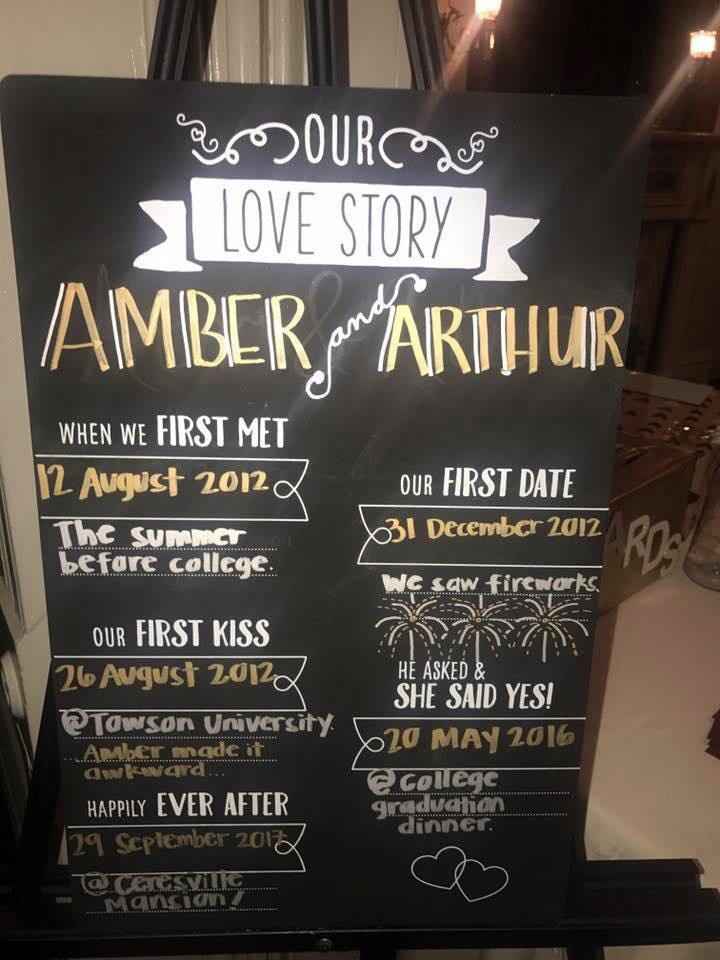 OUR
LOVE STORY
AMBER and ARTHUR
WHEN WE FIRST MET
12 August 2012
The summer
before college.
OUR FIRST DATE
31 December 2012
We saw fireworks
OUR FIRST KISS
26 August 2012
@Towson University.
Amber made it
awkward...
HE ASKED &
SHE SAID YES!
20 MAY 2016
@ college
graduation
dinner.
HAPPILY EVER AFTER
29 September 2017
@ Ceresville
Mansion!
ARDS